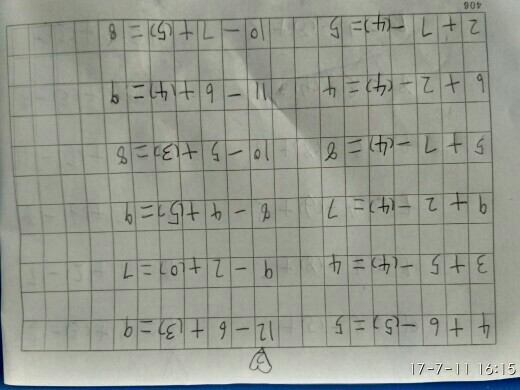 3
4 + 6 -(5)= 5 12 - 6 +(3)= 9
3 + 5 -(4)= 4 9 - 2 +(0)= 7
9 + 2 -(4)= 7 8 - 4 +(5)= 9
5 + 7 -(4)= 8 10 - 5 +(3)= 8
6 + 2 -(4)= 4 11 - 6 +(4)= 9
2 + 7 -(4)= 5 10 - 7 +(5)= 8
17-7-11 16:15